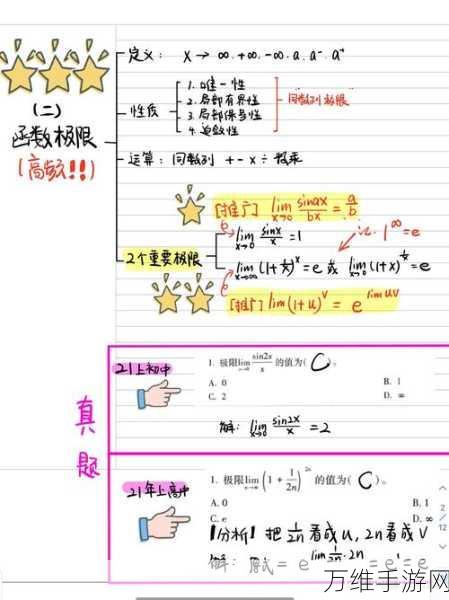 (二)
函数极限
(高频!!)
定义: x→ ∞. +∞. -∞. a. a⁻. a⁺
性质
1. 唯一性
2. 局部有界性
3. 局部保号性
4. 迫敛性
同数列极限
运算: 同数列 + - × ÷
[推广] lim x→0 sinax/bx = a/b
2个重要极限
lim x→0 sinx/x = 1
记. 1^∞ = e
lim x→∞ (1+1/x)^x = e 或 lim x→0 (1+x)^(1/x) = e
[推广] lim(1+u)^v = e^(lim uv)
真题
21上初中
1. 极限lim x→0 sin2x/x 的值为( C )。
A. 0
B. 1
C. 2
D. ∞
解: lim x→0 sin2x/x = 2
21年上高中
1. 极限lim n→∞ (1 + 1/2n)^2n 的值为( C )。
A. 0
B. 1
C. e
D. ∞
[分析] 把 1/2n 看成u, 2n看成V
解: 原式 = e^(lim 1/2n · 2n) = e¹ = e
2
/
12
万维手游网